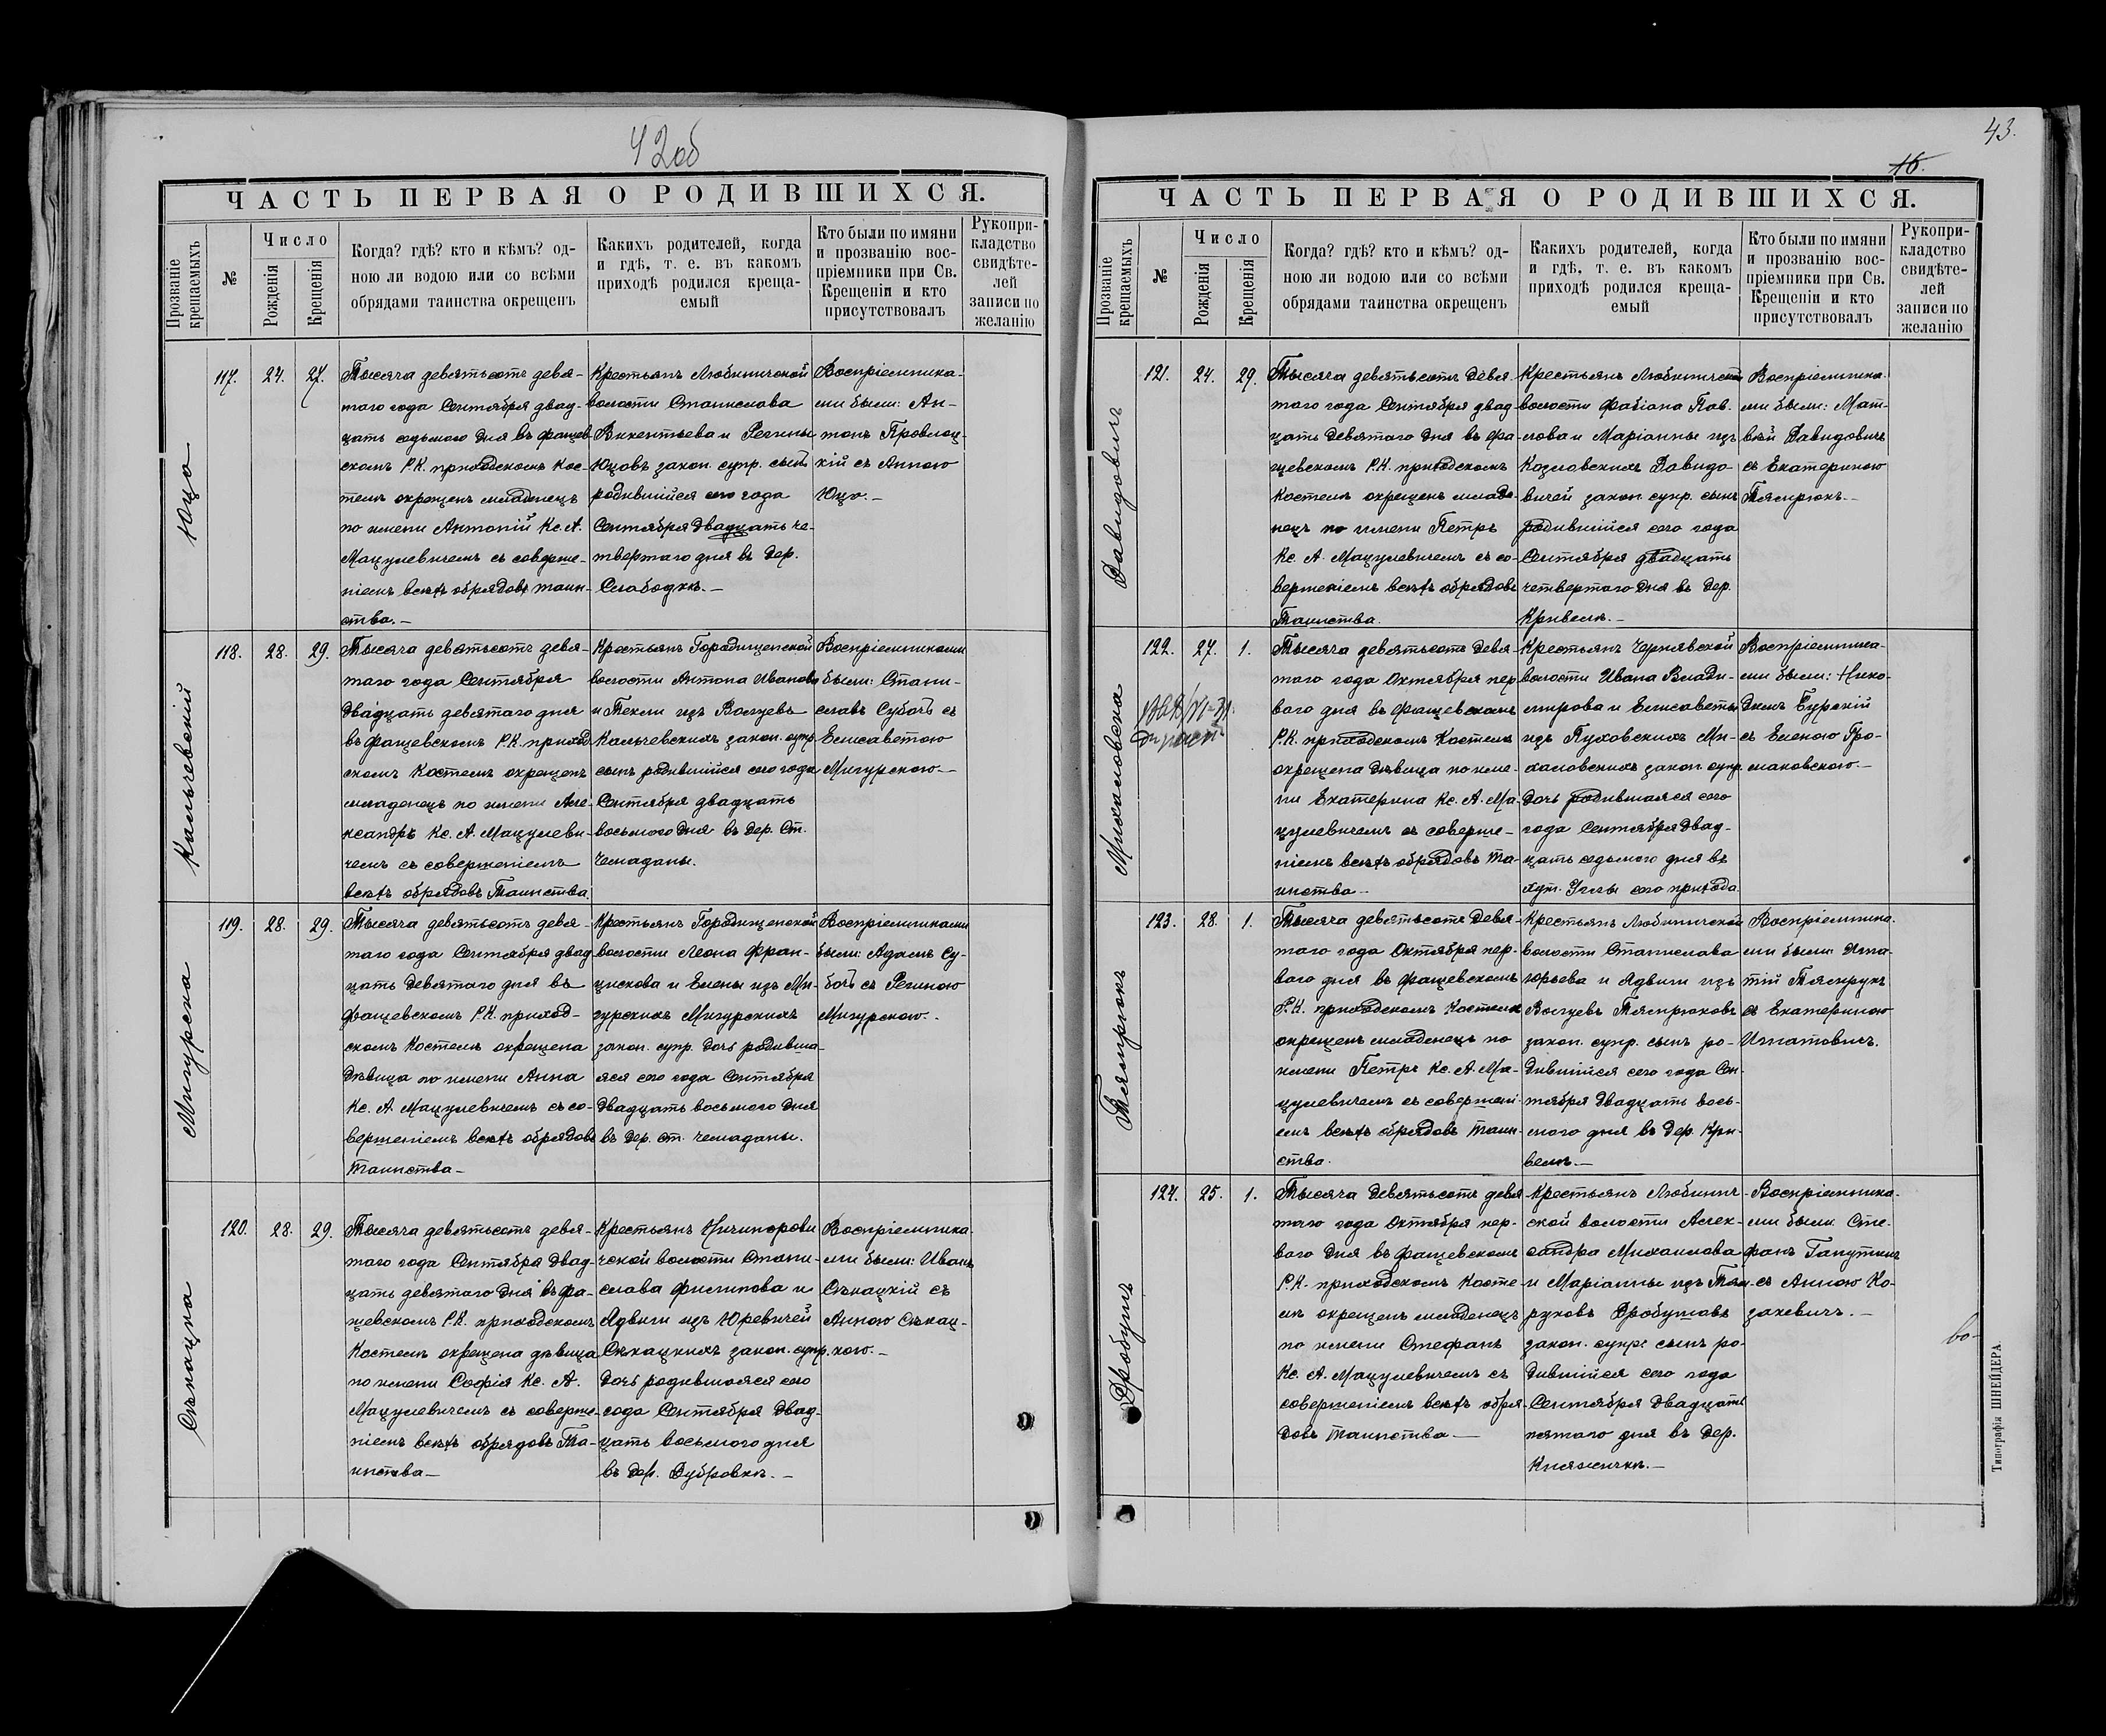 42об
ЧАСТЬ ПЕРВАЯ О РОДИВШИХСЯ.
Прозваніе крещаемыхъ
№
Число
Рожденія
Крещенія
Когда? гдѣ? кто и кѣмъ? од-
ною ли водою или со всѣми
обрядами таинства окрещенъ
Какихъ родителей, когда
и гдѣ, т. е. въ какомъ
приходѣ родился креща-
емый
Кто были по имяни
и прозванію вос-
пріемники при Св.
Крещеніи и кто
присутствовалъ
Рукопри-
кладство
свидѣте-
лей
записи по
желанію
Юцо
117.
24.
27.
Тысяча девятьсотъ девя-
таго года Сентября двад-
цать седьмого дня въ Фащев-
скомъ Р.К. приходскомъ Кос-
телѣ окрещенъ младенецъ
по имени Антоній Кс. А.
Мацулевичемъ съ соверше-
ніемъ всѣхъ обрядовъ таин-
ства.-
Крестьянъ Любиничской
волости Станислава
Викентьева и Регины
Юцовъ закон. супр. сынъ
родившійся сего года
Сентября двадцать че-
твертаго дня въ дер.
Слободкѣ.-
Воспріемника-
ми были: Ан-
тонъ
кій съ Анною
Юцо.-
Кольчевскій
118.
28.
29.
Тысяча девятьсотъ девя-
таго года Сентября
двадцать девятаго дня
въ Фащевскомъ Р.К. приход
скомъ Костелѣ окрещенъ
младенецъ по имени Але-
ксандръ Кс. А. Мацулеви-
чемъ съ совершеніемъ
всѣхъ обрядовъ Таинства
Крестьянъ Городищенской
волости Антона Иванова
и Теклы изъ Волуевъ
Кольчевскихъ закон. супр.
сынъ родившійся сего года
Сентября двадцать
восьмого дня въ дер. Ст.
Чемаданы.
Воспріемниками
были: Стани-
славъ Субочъ съ
Елисаветою
Мигурскою.-
Мигурска
119.
28.
29.
Тысяча девятьсотъ девя-
таго года Сентября двад
цать девятаго дня въ
Фащевскомъ Р.К. приход-
скомъ Костелѣ окрещена
дѣвица по имени Анна
Кс. А. Мацулевичемъ съ со-
вершеніемъ всѣхъ обрядовъ
Таинства-
Крестьянъ Городищенской
волости Леона Фран-
цискова и Елены изъ Ми-
гурскихъ Мигурскихъ
закон. супр. дочь родивша-
яся сего года Сентября
двадцать восьмого дня
въ дер. ст. чемаданы.
Воспріемниками
были: Адамъ Су-
бочъ съ Региною
Мигурскою.-
Сѣкацка
120.
28.
29.
Тысяча девятьсотъ девя-
таго года Сентября двад-
цать девятаго дня въ Фа-
щевскомъ Р.К. приходскомъ
Костелѣ окрещена дѣвица
по имени Софія Кс. А.
Мацулевичемъ съ соверше-
ніемъ всѣхъ обрядовъ Та-
инства-
Крестьянъ Ничипорови
чской волости Стани-
слава Филипова и
Ядвиги изъ Юревичей
Сѣкацкихъ закон. супр.
дочь родившаяся сего
года Сентября двад-
цать восьмого дня
въ дер. Дубровкѣ.-
Воспріемника-
ми были: Иванъ
Сѣкацкій съ
Анною Сѣкац-
кою.-
43.
16.
ЧАСТЬ ПЕРВАЯ О РОДИВШИХСЯ.
Прозваніе крещаемыхъ
№
Число
Рожденія
Крещенія
Когда? гдѣ? кто и кѣмъ? од-
ною ли водою или со всѣми
обрядами таинства окрещенъ
Какихъ родителей, когда
и гдѣ, т. е. въ какомъ
приходѣ родился креща-
емый
Кто были по имяни
и прозванію вос-
пріемники при Св.
Крещеніи и кто
присутствовалъ
Рукопри-
кладство
свидѣте-
лей
записи по
желанію
Давидовичъ
121.
24.
29.
Тысяча девятьсотъ девя-
таго года Сентября двад-
цать девятаго дня въ Фа-
щевскомъ Р.К. приходскомъ
Костелѣ окрещенъ младе-
нецъ по имени Петръ
Кс. А. Мацулевичемъ съ со-
вершеніемъ всѣхъ обрядовъ
Таинства.
Крестьянъ Любиничской
волости Фабіана Пав-
лова и Маріанны изъ
Козловскихъ Давидо-
вичей закон. супр. сынъ
родившійся сего года
Сентября двадцать
четвертаго дня въ дер.
Кривелѣ.-
Воспріемника-
ми были: Мат-
вѣй Давидовичъ
съ Екатериною
Тямрюкъ.-
Михаловска
122.
27.
1.
Тысяча девятьсотъ девя-
таго года Октября пер
ваго дня въ Фащевскомъ
Р.К. приходскомъ Костелѣ
окрещена дѣвица по име-
ни Екатерина Кс. А. Ма-
цулевичемъ съ соверше-
ніемъ всѣхъ обрядовъ Та-
инства.-
Крестьянъ Чернявской
волости Ивана Влади-
мирова и Елисаветы
изъ Пуховскихъ Ми-
халовскихъ закон. супр.
дочь родившаяся сего
года Сентября двад-
цать седьмого дня въ
хут. Углы сего прихода
Воспріемника-
ми были: Нико-
димъ Бурскій
съ Еленою Гро-
маковскою.-
Тямрюкъ
123.
28.
1.
Тысяча девятьсотъ девя-
таго года Октября пер-
ваго дня въ Фащевскомъ
Р.К. приходскомъ Костелѣ
окрещенъ младенецъ по
имени Петръ Кс. А. Ма-
цулевичемъ съ совершені-
емъ всѣхъ обрядовъ Таин-
ства.
Крестьянъ Любиничской
волости Станислава
Юрьева и Ядвиги изъ
Волуевъ Тямрюковъ
закон. супр. сынъ ро-
дившійся сего года Сен-
тября двадцать вось-
мого дня въ дер. Кри-
велѣ.-
Воспріемника-
ми были Игна-
тій Тямрукъ
съ Екатериною
Игнатовичъ.
Дробушъ
124.
25.
1.
Тысяча девятьсотъ девя
таго года Октября пер-
ваго дня въ Фащевскомъ
Р.К. приходскомъ Косте-
лѣ окрещенъ младенецъ
по имени Стефанъ
Кс. А. Мацулевичемъ съ
совершеніемъ всѣхъ обря-
довъ Таинства-
Крестьянъ Любинич-
ской волости Алек-
сандра Михаилова
и Маріанны изъ Тям-
руковъ Дробушовъ
закон. супр. сынъ ро-
дившійся сего года
Сентября двадцать
пятаго дня въ дер.
Княжичкѣ.-
Воспріемника-
ми были Сте-
фанъ Гапуткинъ
съ Анною Ко-
захевичъ.-
во-
Типографія ШНЕЙДЕРА